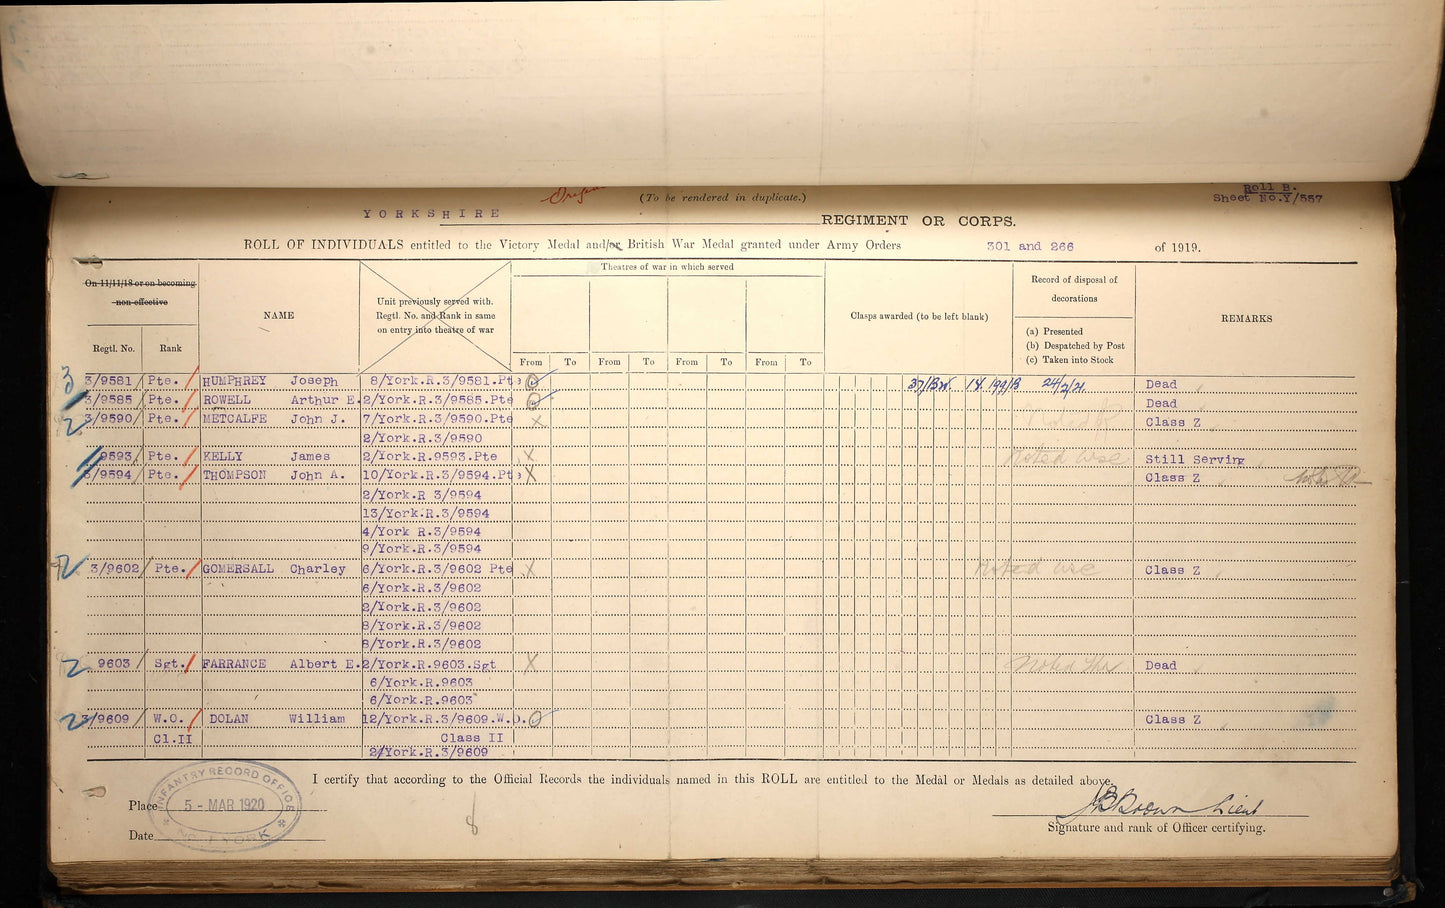 Roll B.
(To be rendered in duplicate.) Sheet No.Y/557
YORKSHIRE REGIMENT OR CORPS.
ROLL OF INDIVIDUALS entitled to the Victory Medal and/or British War Medal granted under Army Orders 301 and 266 of 1919.
On 11/11/18 or on becoming non-effective
Regtl. No. Rank
NAME
Unit previously served with.
Regtl. No. and Rank in same
on entry into theatre of war
Theatres of war in which served
From To From To From To From To
Clasps awarded (to be left blank)
Record of disposal of
decorations
(a) Presented
(b) Despatched by Post
(c) Taken into Stock
REMARKS
3 3/9581 Pte. HUMPHREY Joseph 8/York.R.3/9581.Pte 24/2/21 Dead
3/9585 Pte. ROWELL Arthur E. 2/York.R.3/9585.Pte Dead
2 3/9590 Pte. METCALFE John J. 7/York.R.3/9590.Pte X Class Z
2/York.R.3/9590
9593 Pte. KELLY James 2/York.R.9593.Pte X Noted Still Serving
3/9594 Pte. THOMPSON John A. 10/York.R.3/9594.Pte X Class Z
2/York.R 3/9594
13/York.R.3/9594
4/York R.3/9594
9/York.R.3/9594
2 3/9602 Pte. GOMERSALL Charley 6/York.R.3/9602 Pte X Noted Class Z
6/York.R.3/9602
2/York.R.3/9602
8/York.R.3/9602
8/York.R.3/9602
2 9603 Sgt. FARRANCE Albert E. 2/York.R.9603.Sgt X Noted Dead
6/York.R.9603
6/York.R.9603
2 3/9609 W.O. DOLAN William 12/York.R.3/9609.W.O. Class Z
Cl.II Class II
2/York.R.3/9609
I certify that according to the Official Records the individuals named in this ROLL are entitled to the Medal or Medals as detailed above.
INFANTRY RECORD OFFICE
5 - MAR 1920
No. 1 YORK
Place
Date
8
Brown Lieut
Signature and rank of Officer certifying.